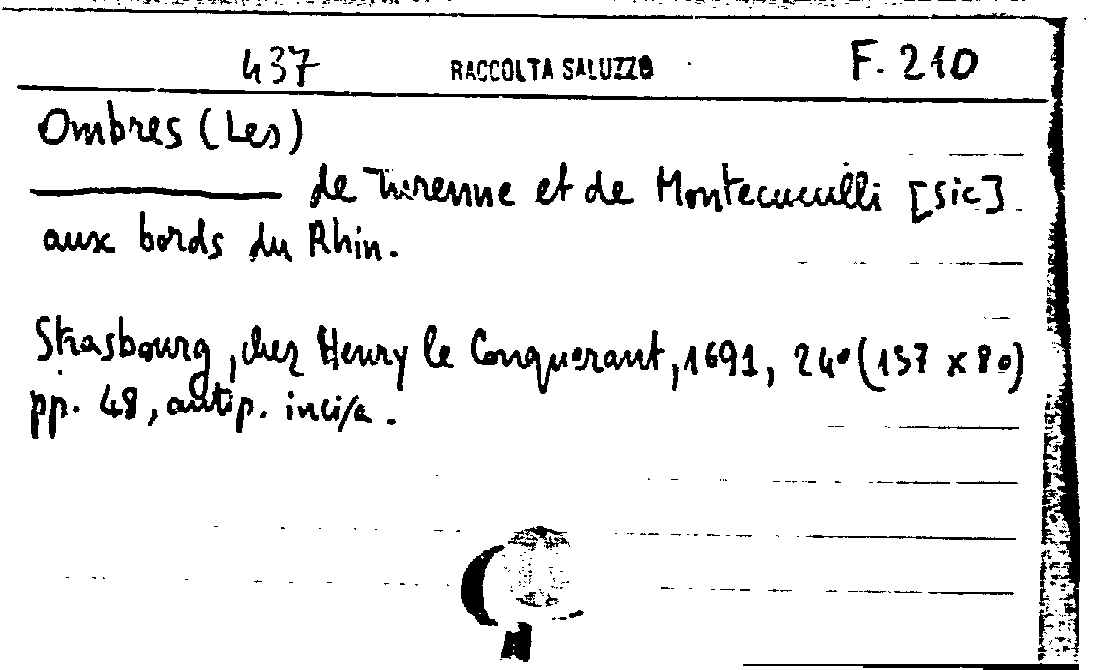 437 RACCOLTA SALUZZO F. 210
Ombres (Les)
de Turenne et de Montecuculli [sic]
aux bords du Rhin.
Strasbourg, chez Henry le Conquerant, 1691, 24° (137 x 80)
pp. 48, antip. incisa.